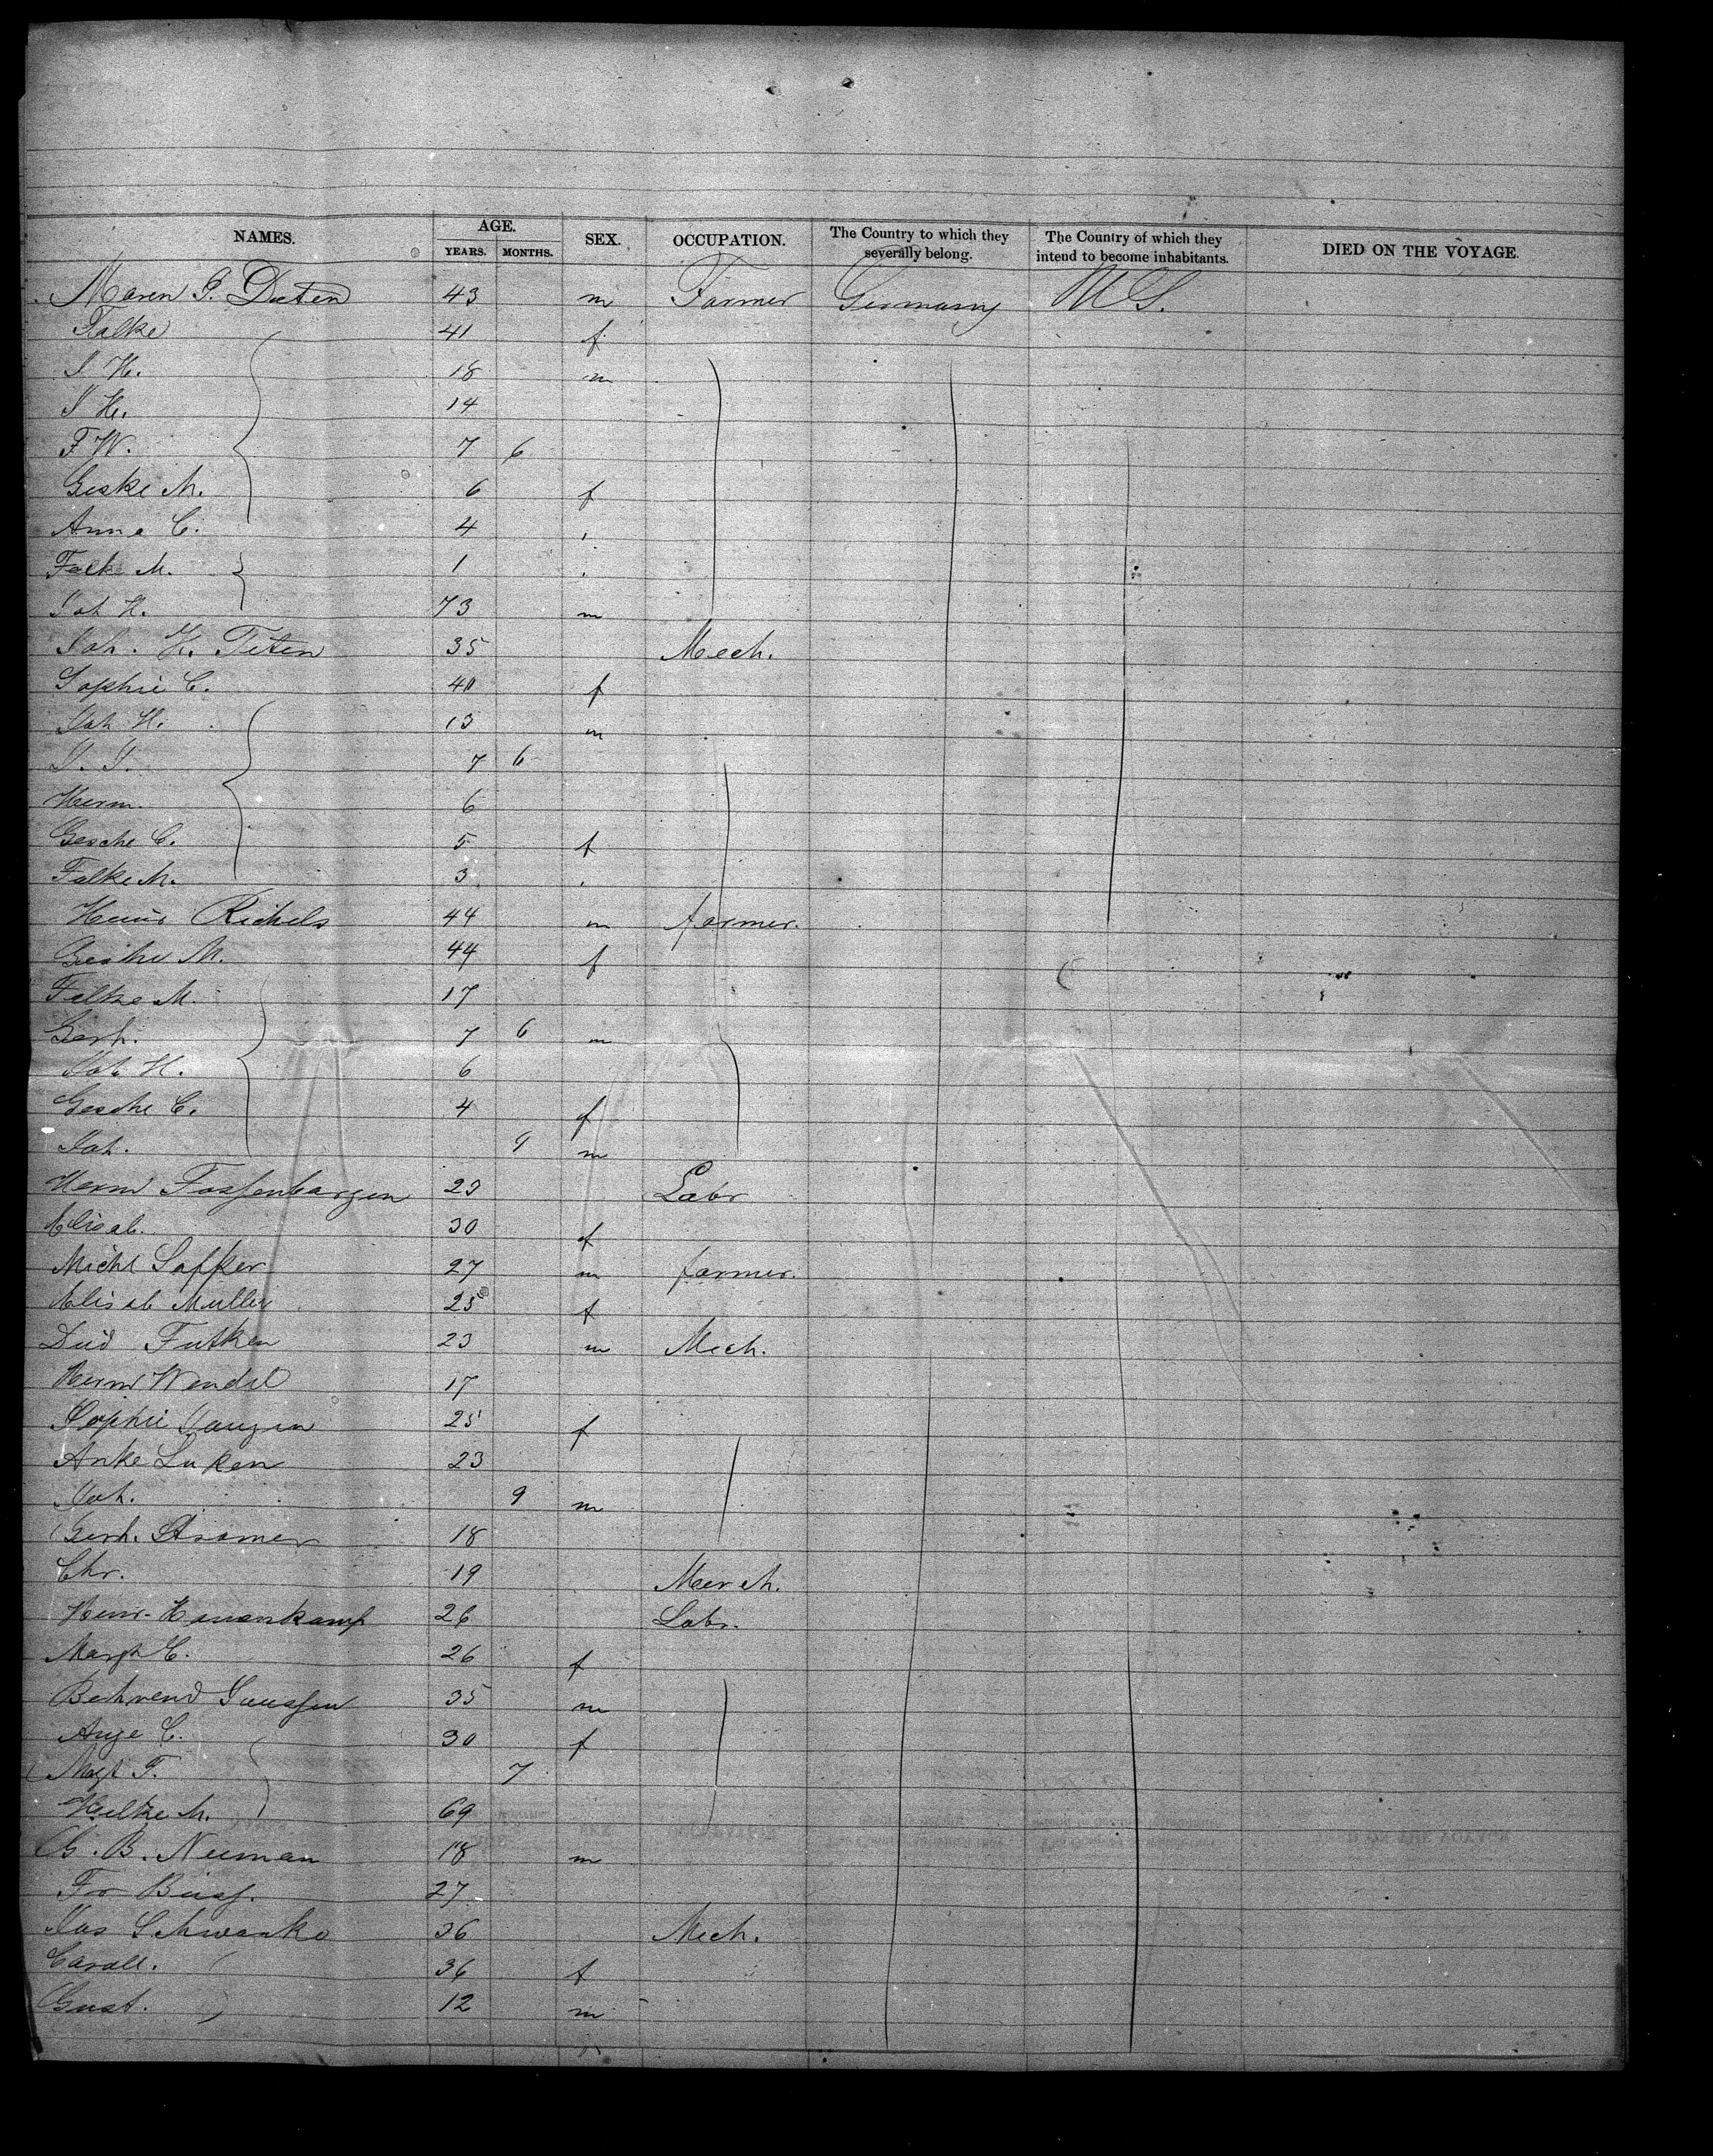 NAMES. AGE. YEARS. MONTHS. SEX. OCCUPATION. The Country to which they severally belong. The Country of which they intend to become inhabitants. DIED ON THE VOYAGE.
Maren G. Dieten 43 m Farmer Germany U S.
Falke 41 f
J H. 18 m
J H. 14
F W. 7 6
Geske M. 6 f
Anna C. 4
Falk M. 1
Joh H. 73 m
Joh. H. Tieten 35 Mech.
Sophie C. 40 f
Joh H. 13 m
J. J. 7 6
Herm. 6
Gesche C. 5 f
Falke M. 3
Heinr Richels 44 m farmer.
Gesche M. 44 f
Falke M. 17
Gerh. 7 6 m
Joh H. 6
Gesche C. 4 f
Joh. 9 m
Herm Fossenbargen 23 Labr
Elisab. 30 f
Michl 27 m farmer.
Elisab Muller 25 f
Futken 23 m Mech.
Herm Wendel 17
Sophie 25 f
Anke Luken 23
Joh. 9 m
Gerh. 18
Chr. 19 Merch.
Heinr. 26 Labr.
Margh C. 26 f
Behrend 35 m
Anje C. 30 f
7
Heilke M. 69
G. B. Neuman 18 m
Fr 27
Jos Schwanke 36 Mech.
Caroll. 36 f
Gust. 12 m